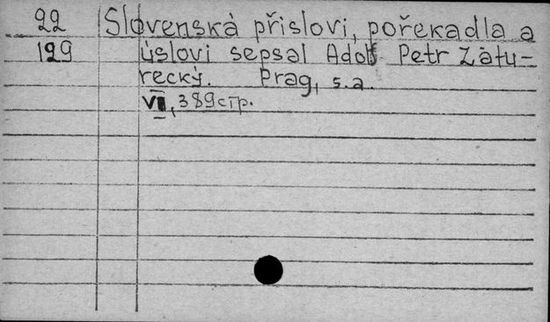 22 Slovenská přislovi, pořekadla a
129 úslovi sepsal Adolf Petr Zátu-
recký. Prag, s.a.
VII, 389стр.